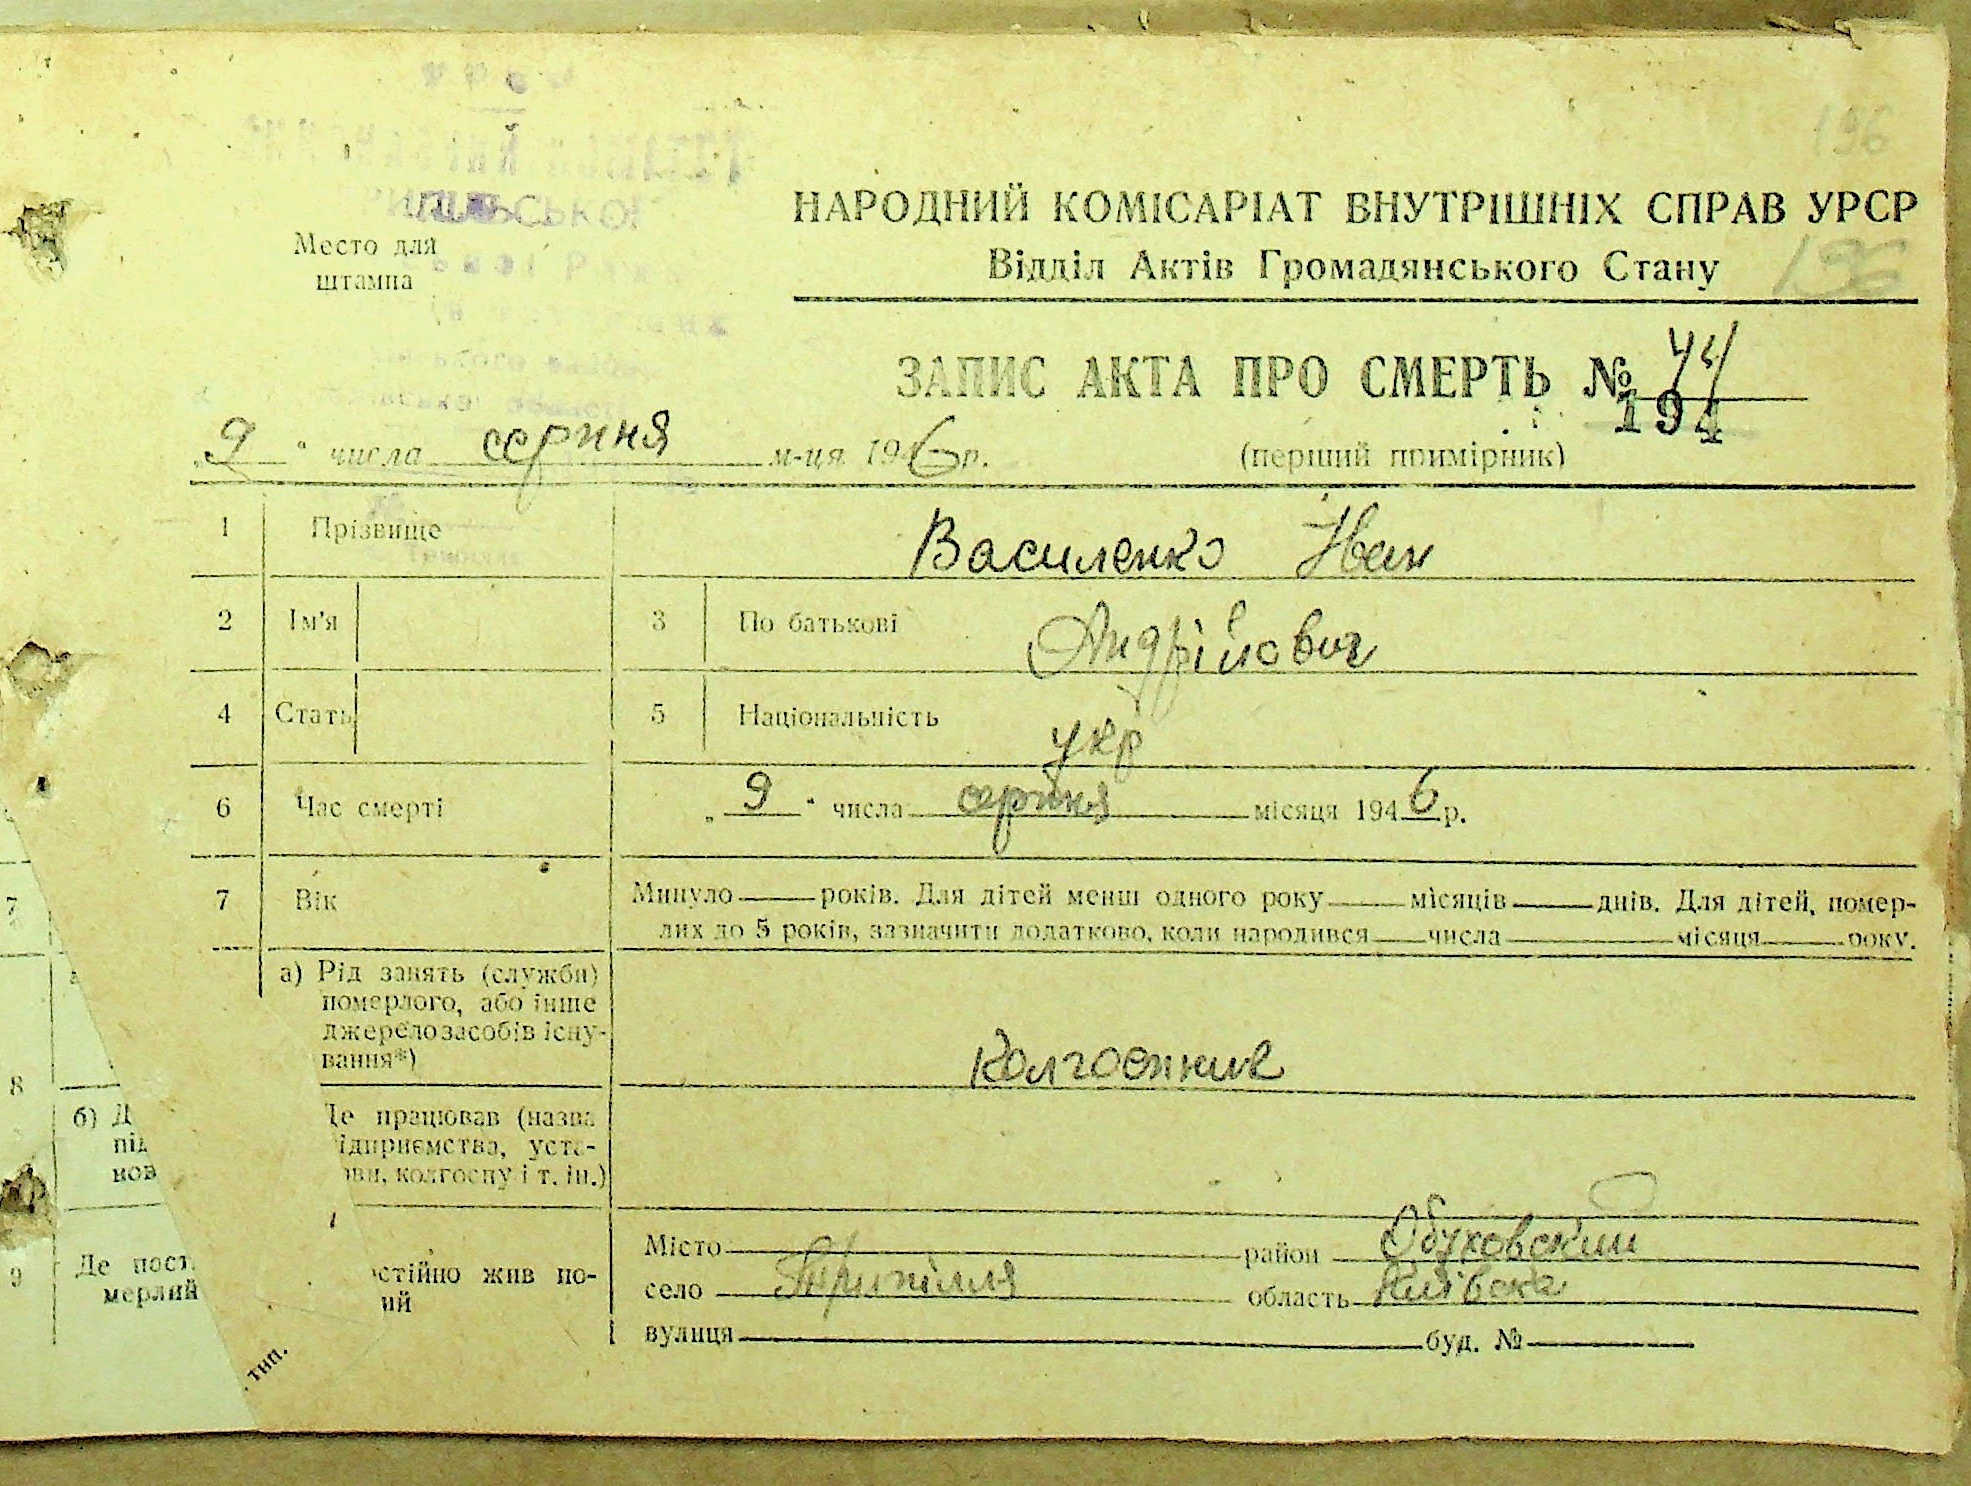 196
НАРОДНИЙ КОМІСАРІАТ ВНУТРІШНІХ СПРАВ УРСР
Відділ Актів Громадянського Стану
196
Место для
штампа
ЗАПИС АКТА ПРО СМЕРТЬ № 44
194
„9“ числа серпня м-ця 1946 р.
(перший примірник)
1 Прізвище Василенко Іван
2 Ім'я 3 По батькові Андрійович
4 Стать 5 Національність укр
6 Час смерті „9“ числа серпня місяця 1946 р.
7 Вік Минуло років. Для дітей менш одного року місяців днів. Для дітей, помер-
лих до 5 років, зазначити додатково, коли народився числа місяця року.
а) Рід занять (служби)
померлого, або інше
джерело засобів існу-
вання*)
Колгоспник
7
8
б) Д
під
нов
Де працював (назва
ідприємства, уста-
ови, колгоспу і т. ін.)
9 Де пост
мерлий
стійно жив по-
ий
Місто район Обуховский
село Трипілля область Київска
вулиця буд. №
тип.